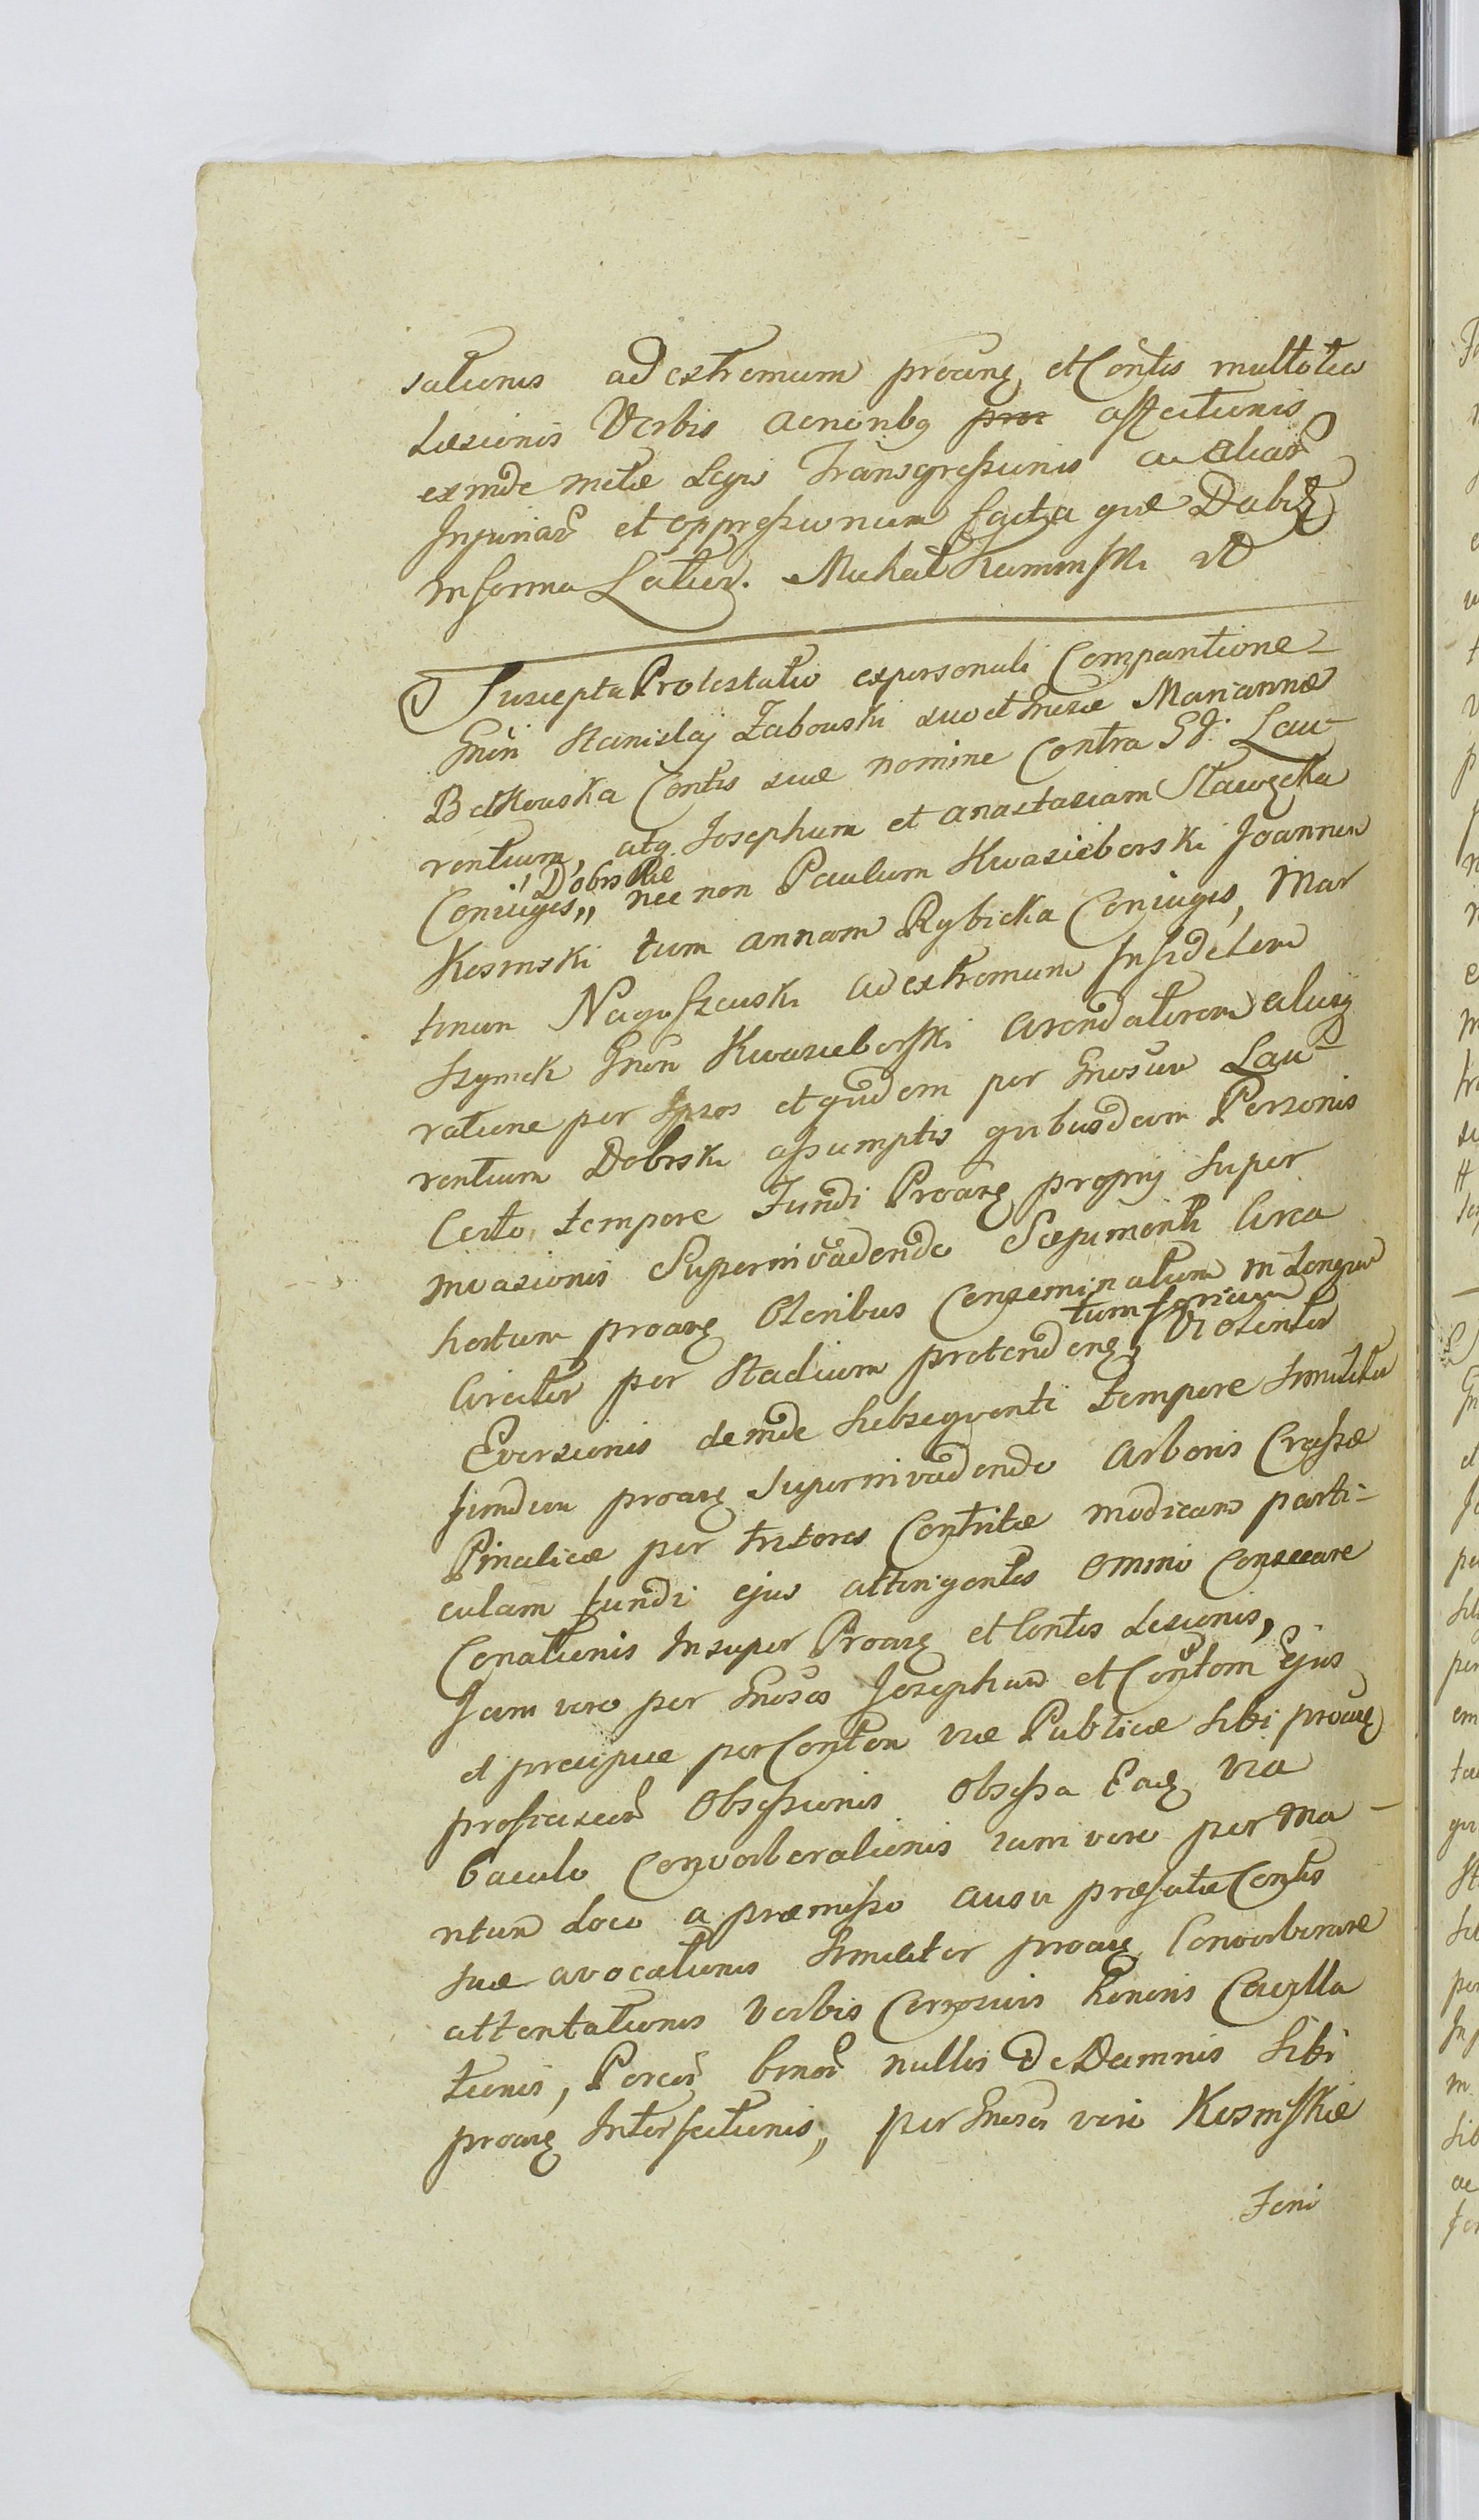 sationis ad extremum proang et Contis multoties
Læsionis Verbis acrioribg pror affectionis
exinde metæ Legis Transgressionis ac aliar
Injuriar et oppressionum facta quæ Dabit
in forma Latior. Michał Kaminski
Suscepta Protestatio expersonali Comparitione
Gnên Stanislaj Zabouski suo et Gnesæ Mariannæ
Betkouska Contis suæ nomine Contra Gd. Lau-
rentium, atq. Josephum et anastasiam Slawecka
Coniuges,, Dobrskie nec non Paulum Kwasieborski Joannem
Kosinski tum annam Rybicka Coniuges, Mar
tinum Nagoszeuski ad extremum Infidelem
Szymek Gnên Kwasieborski arendatorem
ratione per Ipsos et quidem per Gnosum Lau-
rentium Dobrski assumptis quibusdam Personis
Certo tempore Fundi Proang proprij Super
invasionis Superinvadendo Sæpimenti Circa
hortum proang Oleribus Conseminatum in Longum
Circiter per Stadium pretendeng, tum Violenter
Eversionis deinde Subsequenti tempore Simuliter
fundum proang Superinvadendo arboris Crassæ
Pinalicæ per tritores Contritæ modicam parti-
culam fundi ejus attingentes omnino Consecare
Conationis Insuper Proang et Contis Lesionis,
Jam vero per Gnosos Josephum et Contem Ejus
et precipue per Contem viæ Publicæ Sibi proang
proficiscen Obsessionis Obsessa Eadg via
baculo Conuerberationis iam vero per Ma-
ritum Loco a præmisso ausu præfatæ Contis
suæ avocationis Simuliter proang Conuerberare
attentationis Verbis Corrosivis honoris Cavilla
tionis, Porcor binor nullis De Damnis Sibi
proang Interfectionis, per Gnosos vero Kosinskie
Feni